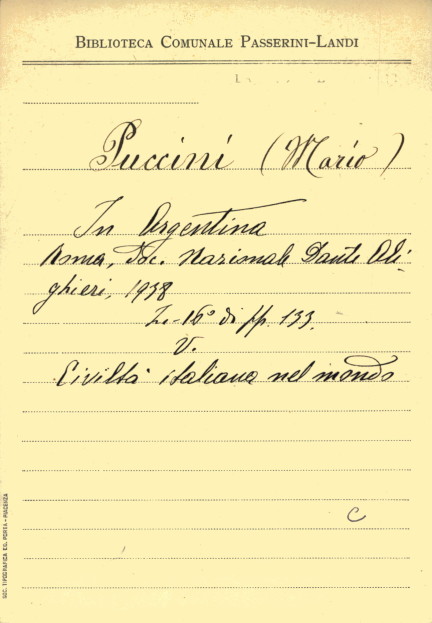 BIBLIOTECA COMUNALE PASSERINI-LANDI
Puccini (Mario)
In Argentina
Roma, Soc. Nazionale Dante Ali-
ghieri, 1938
In-16° di pp. 133.
V.
Civiltà italiana nel mondo
C
SOC. TIPOGRAFICA ED. PORTA - PIACENZA